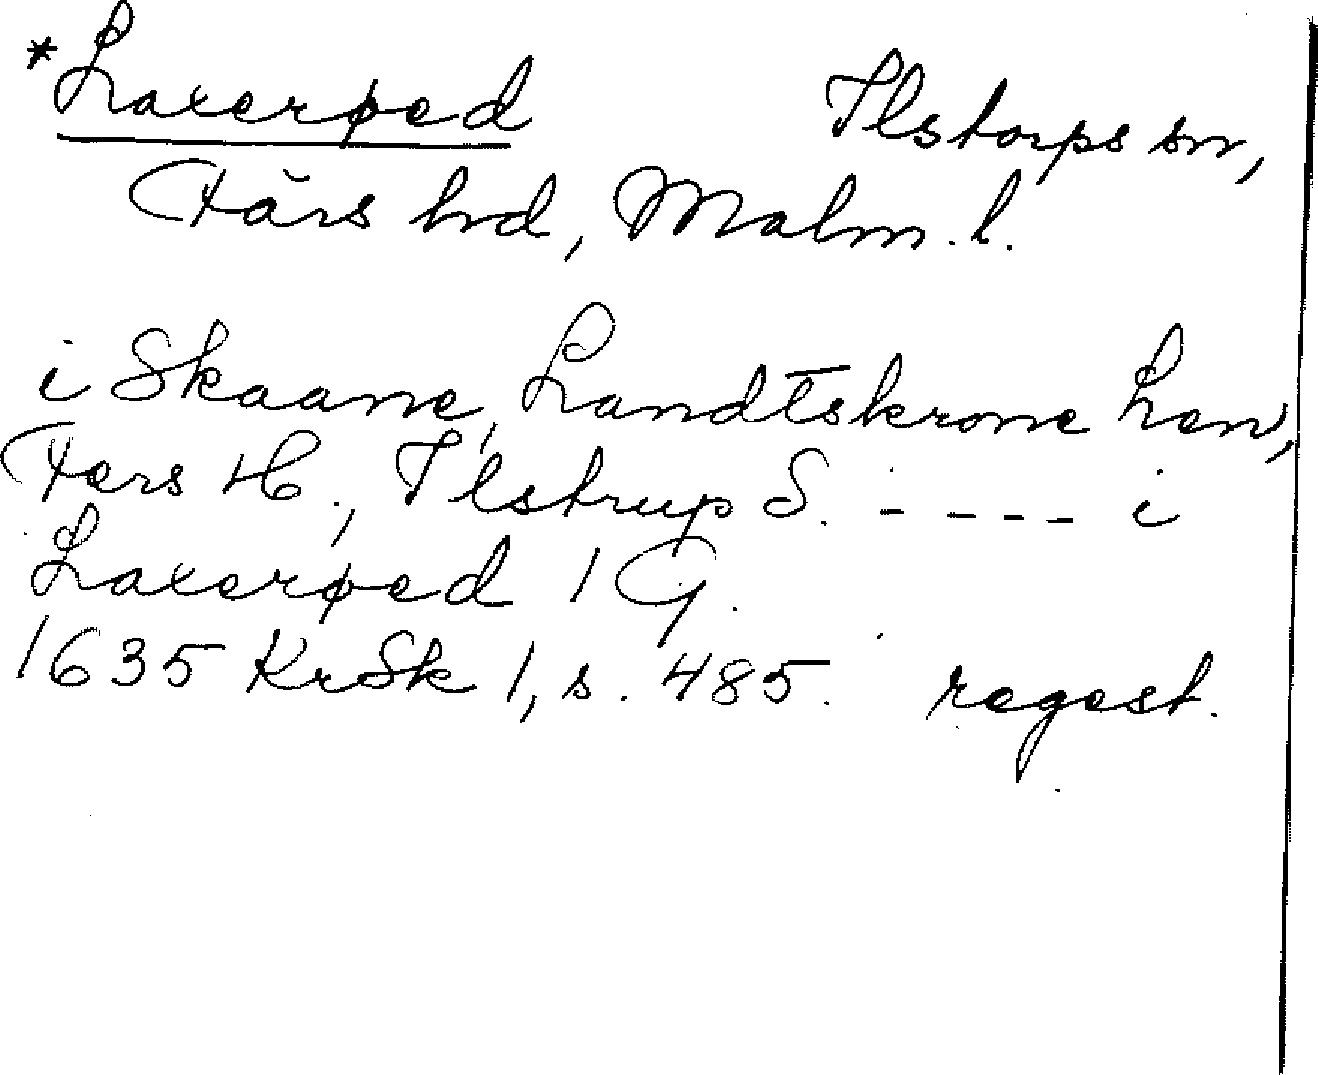 *Laxerøed Ilstorps sn,
Färs hd, Malm. l.
i Skaane, Landtskrone Len,
Fers H., Ilstrup S. - - - - i
Laxerøed 1 G.
1635 KrSk 1, s. 485. regest.